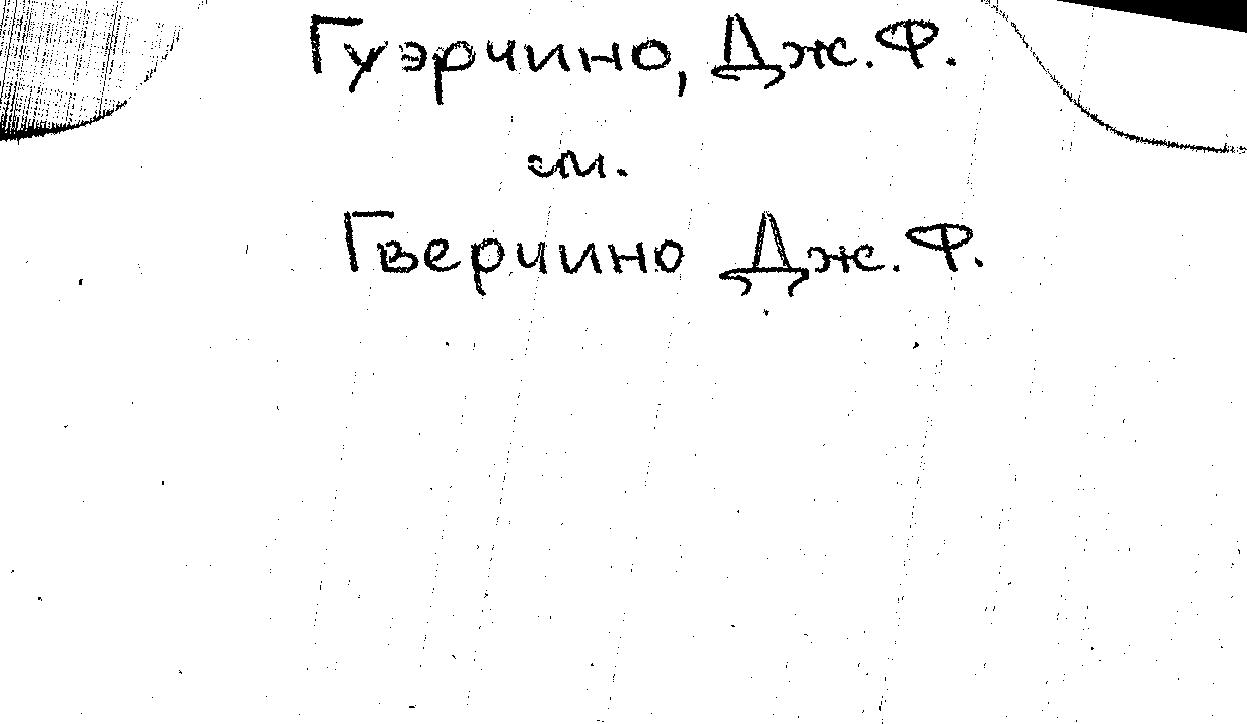 Гуэрчино, Дж. Ф.
см.
Гверчино Дж. Ф.